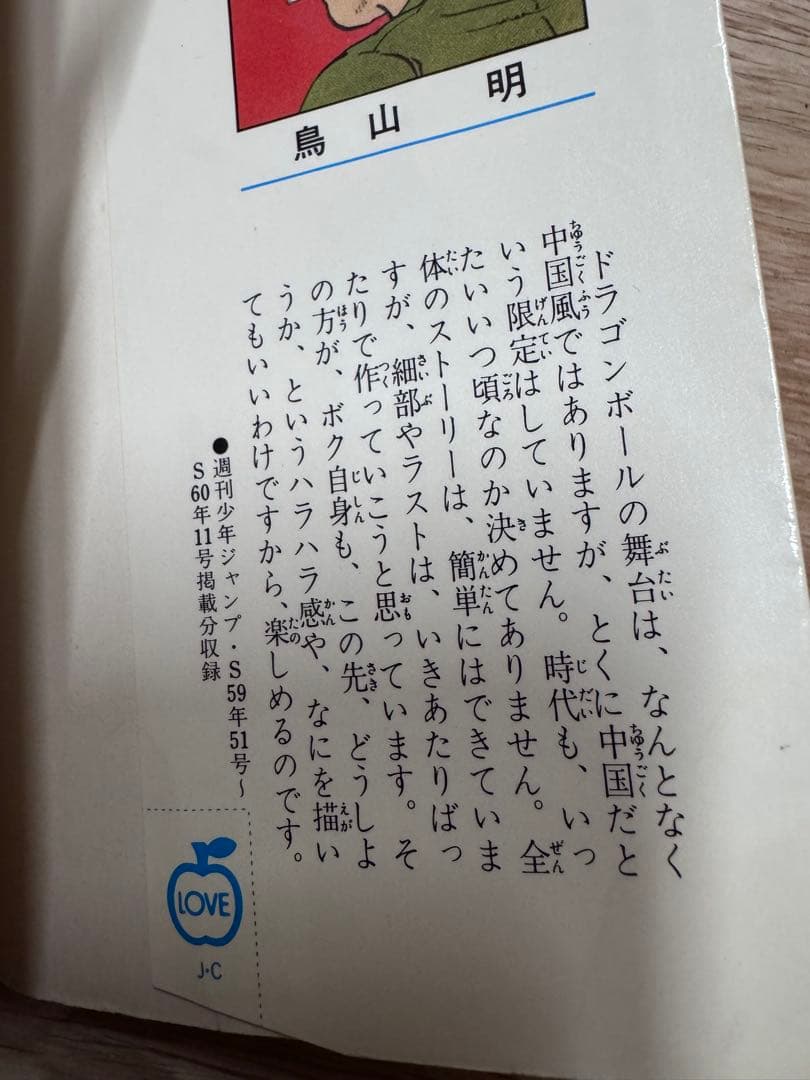 鳥山 明
ドラゴンボールの舞台は、なんとなく
中国風ではありますが、とくに中国だと
いう限定はしていません。時代も、いっ
たいいつ頃なのか決めてありません。全
体のストーリーは、簡単にはできていま
すが、細部やラストは、いきあたりばっ
たりで作っていこうと思っています。そ
の方が、ボク自身も、この先、どうしよ
うか、というハラハラ感や、なにを描い
てもいいわけですから、楽しめるのです。
●週刊少年ジャンプ・S59年51号〜
S60年11号掲載分収録
LOVE
J·C